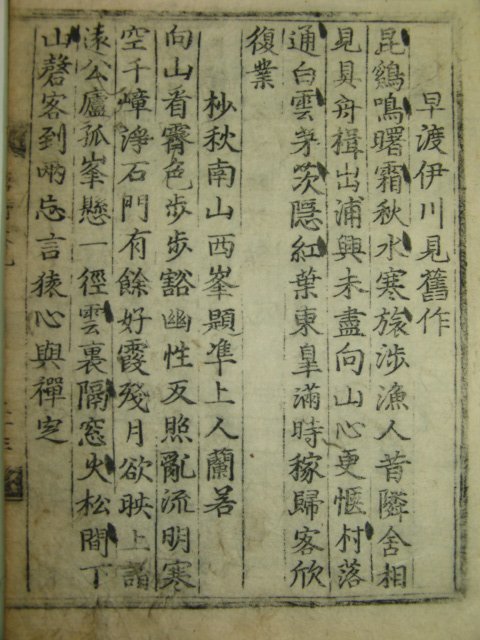 早渡伊川見舊作
昆鷄鳴曙霜秋水寒旅涉漁人昔隣舍相
見具舟楫出浦興未盡向山心更愜村落
通白雲茅茨隱紅葉東皐滿時稼歸客欣
復業
杪秋南山西峯題准上人蘭若
向山看霽色步步豁幽性反照亂流明寒
空千嶂淨石門有餘好霞殘月欲映上詣
遠公廬孤峯懸一徑雲裏隔窓火松間下
山磬客到兩忘言猿心與禪定